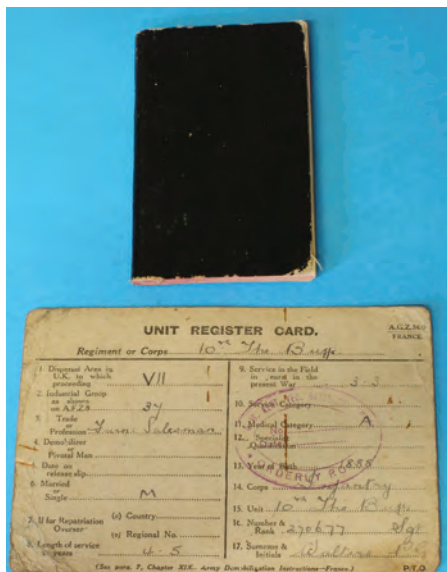 UNIT REGISTER CARD.
A.G.Z.
FRANCE.
Regiment or Corps 10th The Buffs
1. Dispersal Area in
U.K. to which
proceeding VII
2. Industrial Group
as shown
on A.F.Z.8 37
3. Trade
or
Profession Furn. Salesman
4. Demobiliser
or
Pivotal Man
5. Date on
release slip.
6. Married
or
Single M
7. If for Repatriation
Oversea
(a) Country
(b) Regional No.
8. Length of service
in years 4-5
9. Service in the Field
in the
present War 3-3
10. Service Category
11. Medical Category A
12. Specialist
13. Year of Birth
14. Corps Infantry
15. Unit 10th The Buffs
16. Number &
Rank 270677 Sgt
17. Surname &
Initials
(See para. 7, Chapter XIX. Army Demobilization Instructions—France.)
P.T.O